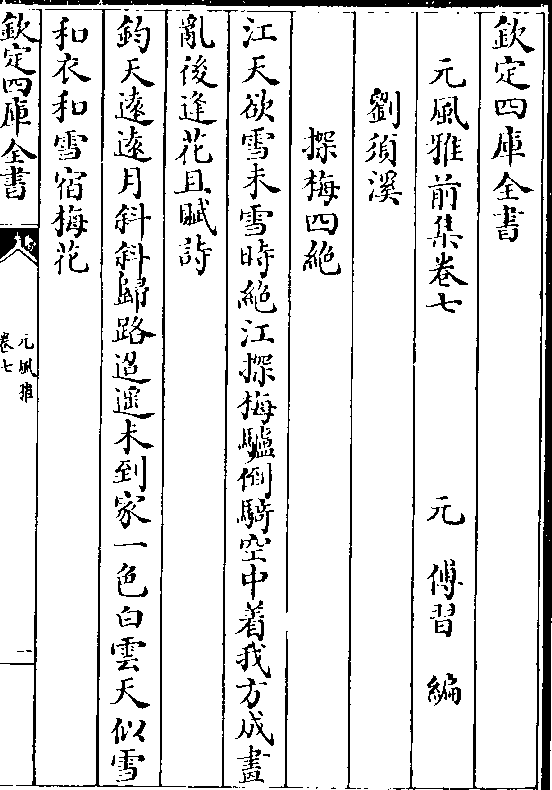 欽定四庫全書
元風雅前集卷七
元 傅習 編
劉須溪
探梅四絶
江天欲雪未雪時絶江探梅驢倒騎空中着我方成畫
亂後逢花且賦詩
鈞天逺逺月斜斜歸路迢遥未到家一色白雲天似雪
和衣和雪宿梅花
欽定四庫全書
元風雅
卷七
一